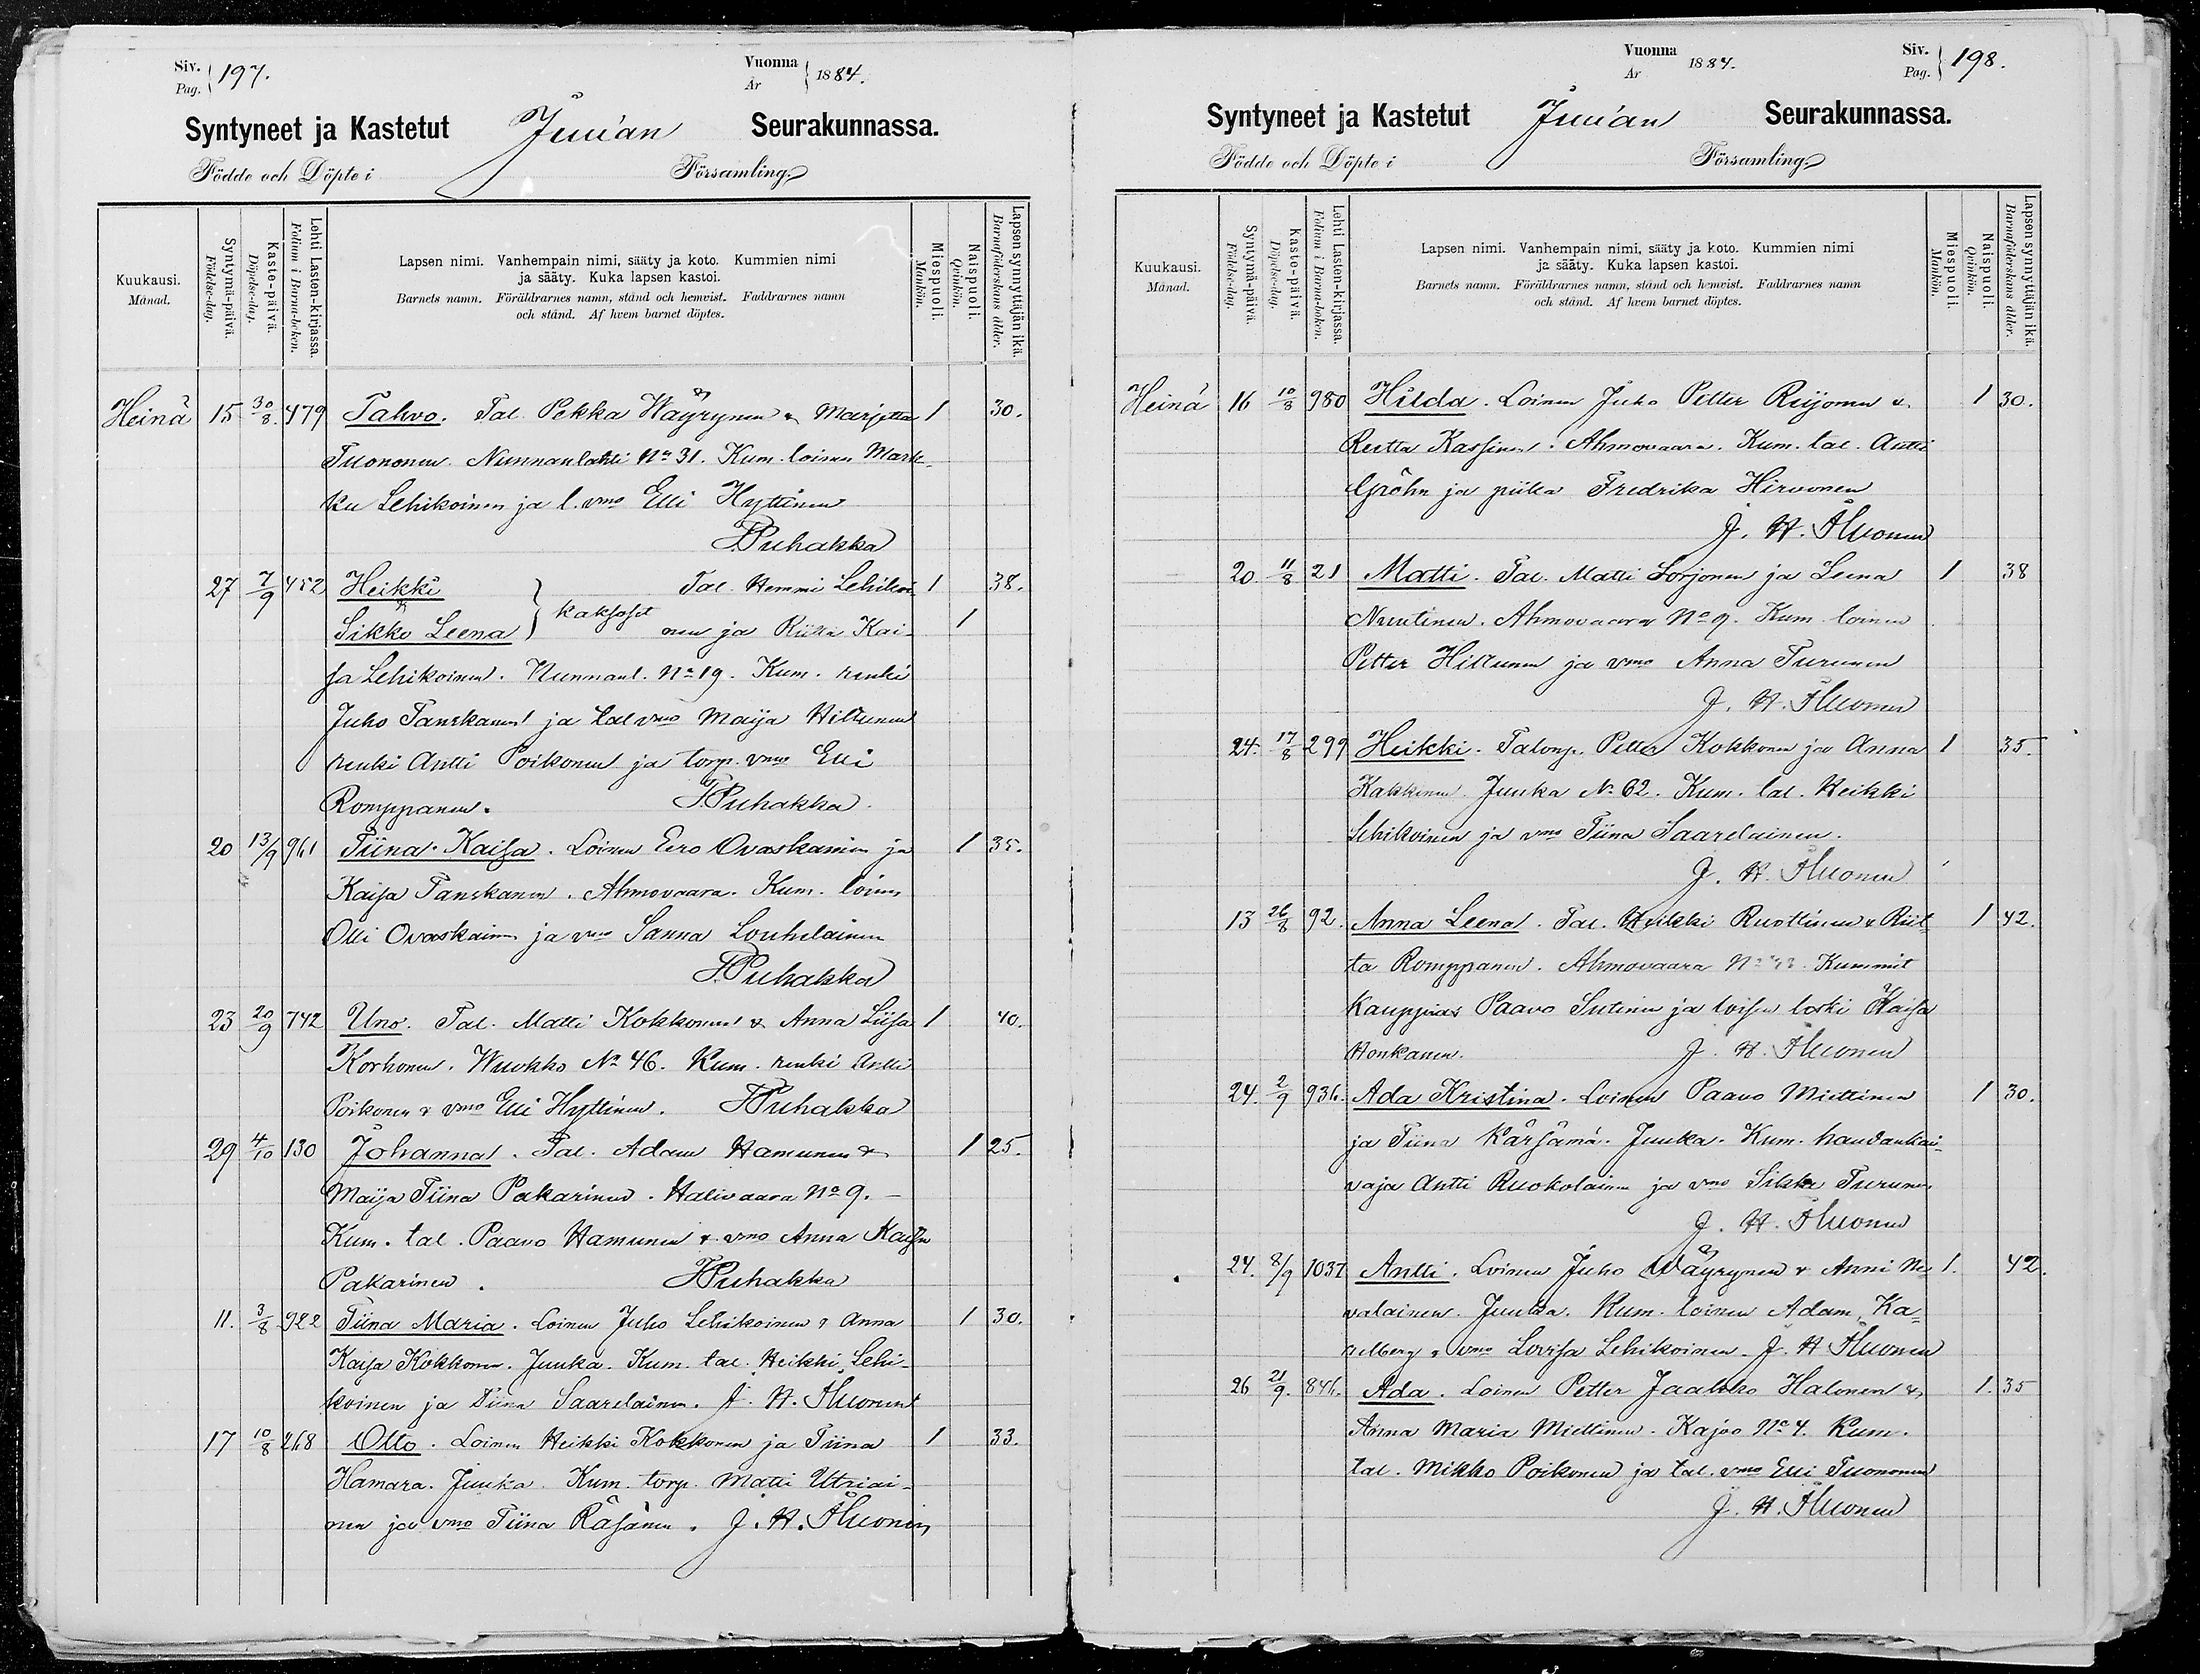 Siv. Pag. 197.
Vuonna År 1884.
Syntyneet ja Kastetut Juuan Seurakunnassa.
Födde och Döpte i Församling.
Kuukausi. Månad.
Syntymä-päivä. Födelse-dag.
Kasto-päivä. Döpelse-dag.
Lehti Lasten-kirjassa. Folium i Barna-boken.
Lapsen nimi. Vanhempain nimi, sääty ja koto. Kummien nimi
ja sääty. Kuka lapsen kastoi.
Barnets namn. Föräldrarnes namn, stånd och hemvist. Faddrarnes namn
och stånd. Af hvem barnet döptes.
Miespuoli. Mankön.
Naispuoli. Qvinkön.
Lapsen synnyttäjän ikä. Barnaföderskans ålder.
Heinä 15 30/8. 479 Tahvo. Tal. Pekka Wäyrynen & Marjetta 1 30.
Tuononen. Nunnanlahti No 31. Kum. loinen Mark-
ku Lehikoinen ja l. vmo Elli Hyttinen
Puhakka
27 7/9 452 Heikki Tal. Hemmi Lehikoi- 1 38.
Sikko Leena } kaksoset nen ja Riitta Kai- 1
sa Lehikoinen. Nunnanl. No 19. Kum. renki
Juho Tanskanen ja tal vmo Maija Hiltunen
renki Antti Poikonen ja torp. vmo Elli
Romppanen. Puhakka.
20 13/9 961 Tiina Kaisa. Loinen Eero Ovaskainen ja 1 35.
Kaisa Tanskanen. Ahmovaara. Kum. loinen
Olli Ovaskainen ja vmo Sanna Louhelainen
Puhakka
23 20/9 742 Uno. Tal. Matti Kokkonen & Anna Liisa 1 40.
Korhonen. Wuokko No 46. Kum. renki Antti
Poikonen & vmo Elli Hyttinen. Puhakka
29 4/10 130 Johanna. Tal. Adam Hamunen & 1 25.
Maija Tiina Pakarinen. Halivaara No 9. –
Kum. tal. Paavo Hamunen & vmo Anna Kaisa
Pakarinen. Puhakka
11. 3/8 982 Tiina Maria. Loinen Juho Lehikoinen & Anna 1 30.
Kaisa Kokkonen. Juuka. Kum. tal. Heikki Lehi-
koinen ja Tiina Saarelainen. J. H.
17 10/8 268 Otto. Loinen Heikki Kokkonen ja Tiina 1 33.
Hamara. Juuka. Kum. torp. Matti Utriai-
nen ja vmo Tiina Räsänen. J. H.
Vuonna År 1884.
Siv. Pag. 198.
Syntyneet ja Kastetut Juuan Seurakunnassa.
Födde och Döpte i Församling.
Kuukausi. Månad.
Syntymä-päivä. Födelse-dag.
Kasto-päivä. Döpelse-dag.
Lehti Lasten-kirjassa. Folium i Barna-boken.
Lapsen nimi. Vanhempain nimi, sääty ja koto. Kummien nimi
ja sääty. Kuka lapsen kastoi.
Barnets namn. Föräldrarnes namn, stånd och hemvist. Faddrarnes namn
och stånd. Af hvem barnet döptes.
Miespuoli. Mankön.
Naispuoli. Qvinkön.
Lapsen synnyttäjän ikä. Barnaföderskans ålder.
Heinä 16 10/8 980 Hilda. Loinen Juho Petter Reijonen & 1 30.
Reetta Kassinen. Ahmovaara. Kum. tal. Antti
Gröhn ja piika Fredrika Hirvonen
J. H.
20 11/8 21 Matti. Tal. Matti Sorjonen ja Leena 1 38
Nuutinen. Ahmovaara No 9. Kum. loinen
Petter Hiltunen ja vmo Anna Turunen
J. H.
24. 17/8 299 Heikki. Talonp. Petter Kokkonen ja Anna 1 35.
Kakkinen Juuka No 62. Kum. tal. Heikki
Lehikoinen ja vmo Tiina Saarelainen.
J. H.
13 26/8 92. Anna Leena. Tal. Heikki Ruottinen & Riit- 1 42.
ta Romppanen. Ahmovaara No Kummit
Kauppias Paavo Sutinen ja loisen leski Kaisa
Honkanen. J. H.
24. 2/9 936. Ada Kristina. Loinen Paavo Miettinen 1 30.
ja Tiina Kärsämä. Juuka. Kum. haudankai-
vaja Antti Ruokolainen ja vmo Sikko Turunen.
J. H.
24. 8/9 1037 Antti. Loinen Juho Wäyrynen & Anni Ne- 1. 42.
valainen. Juuka. Kum. loinen Adam Ka-
& vmo Lovisa Lehikoinen. J. H
26 21/9. 846. Ada. Loinen Petter Jaakko Halonen & 1. 35
Anna Maria Miettinen. Kajoo No 4. Kum.
tal. Mikko Poikonen ja tal. vmo Elli Tuononen
J. H.